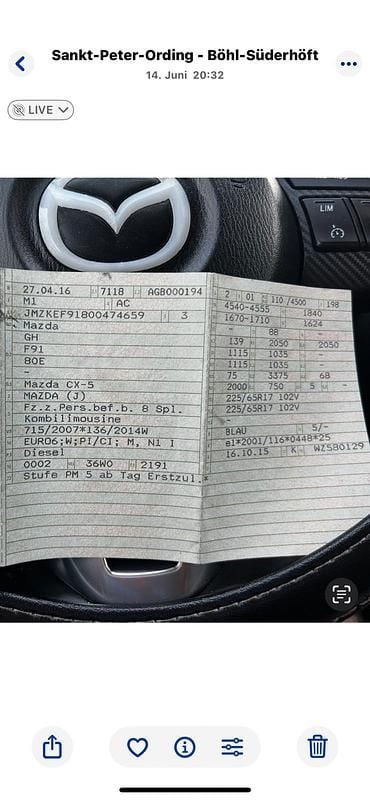 Sankt-Peter-Ording - Böhl-Süderhöft
14. Juni 20:32
LIVE
LIM
27.04.16 7118 AGB000194
M1 AC
JMZKEF91800474659 3
Mazda
GH
F91
80E
-
Mazda CX-5
MAZDA (J)
Fz.z.Pers.bef.b. 8 Spl.
Kombilimousine
715/2007*136/2014W
EURO6;W;PI/CI; M, N1 I
Diesel
0002 36W0 2191
Stufe PM 5 ab Tag Erstzul.*
2 01 110 /4500 198
4540-4555 1840
1670-1710 1624
- 88 -
139 2050 2050
1115 1035 -
1115 1035 -
75 3375 68
2000 750 5 -
225/65R17 102V
225/65R17 102V
BLAU 5/-
e1*2001/116*0448*25
16.10.15 K WZ580129